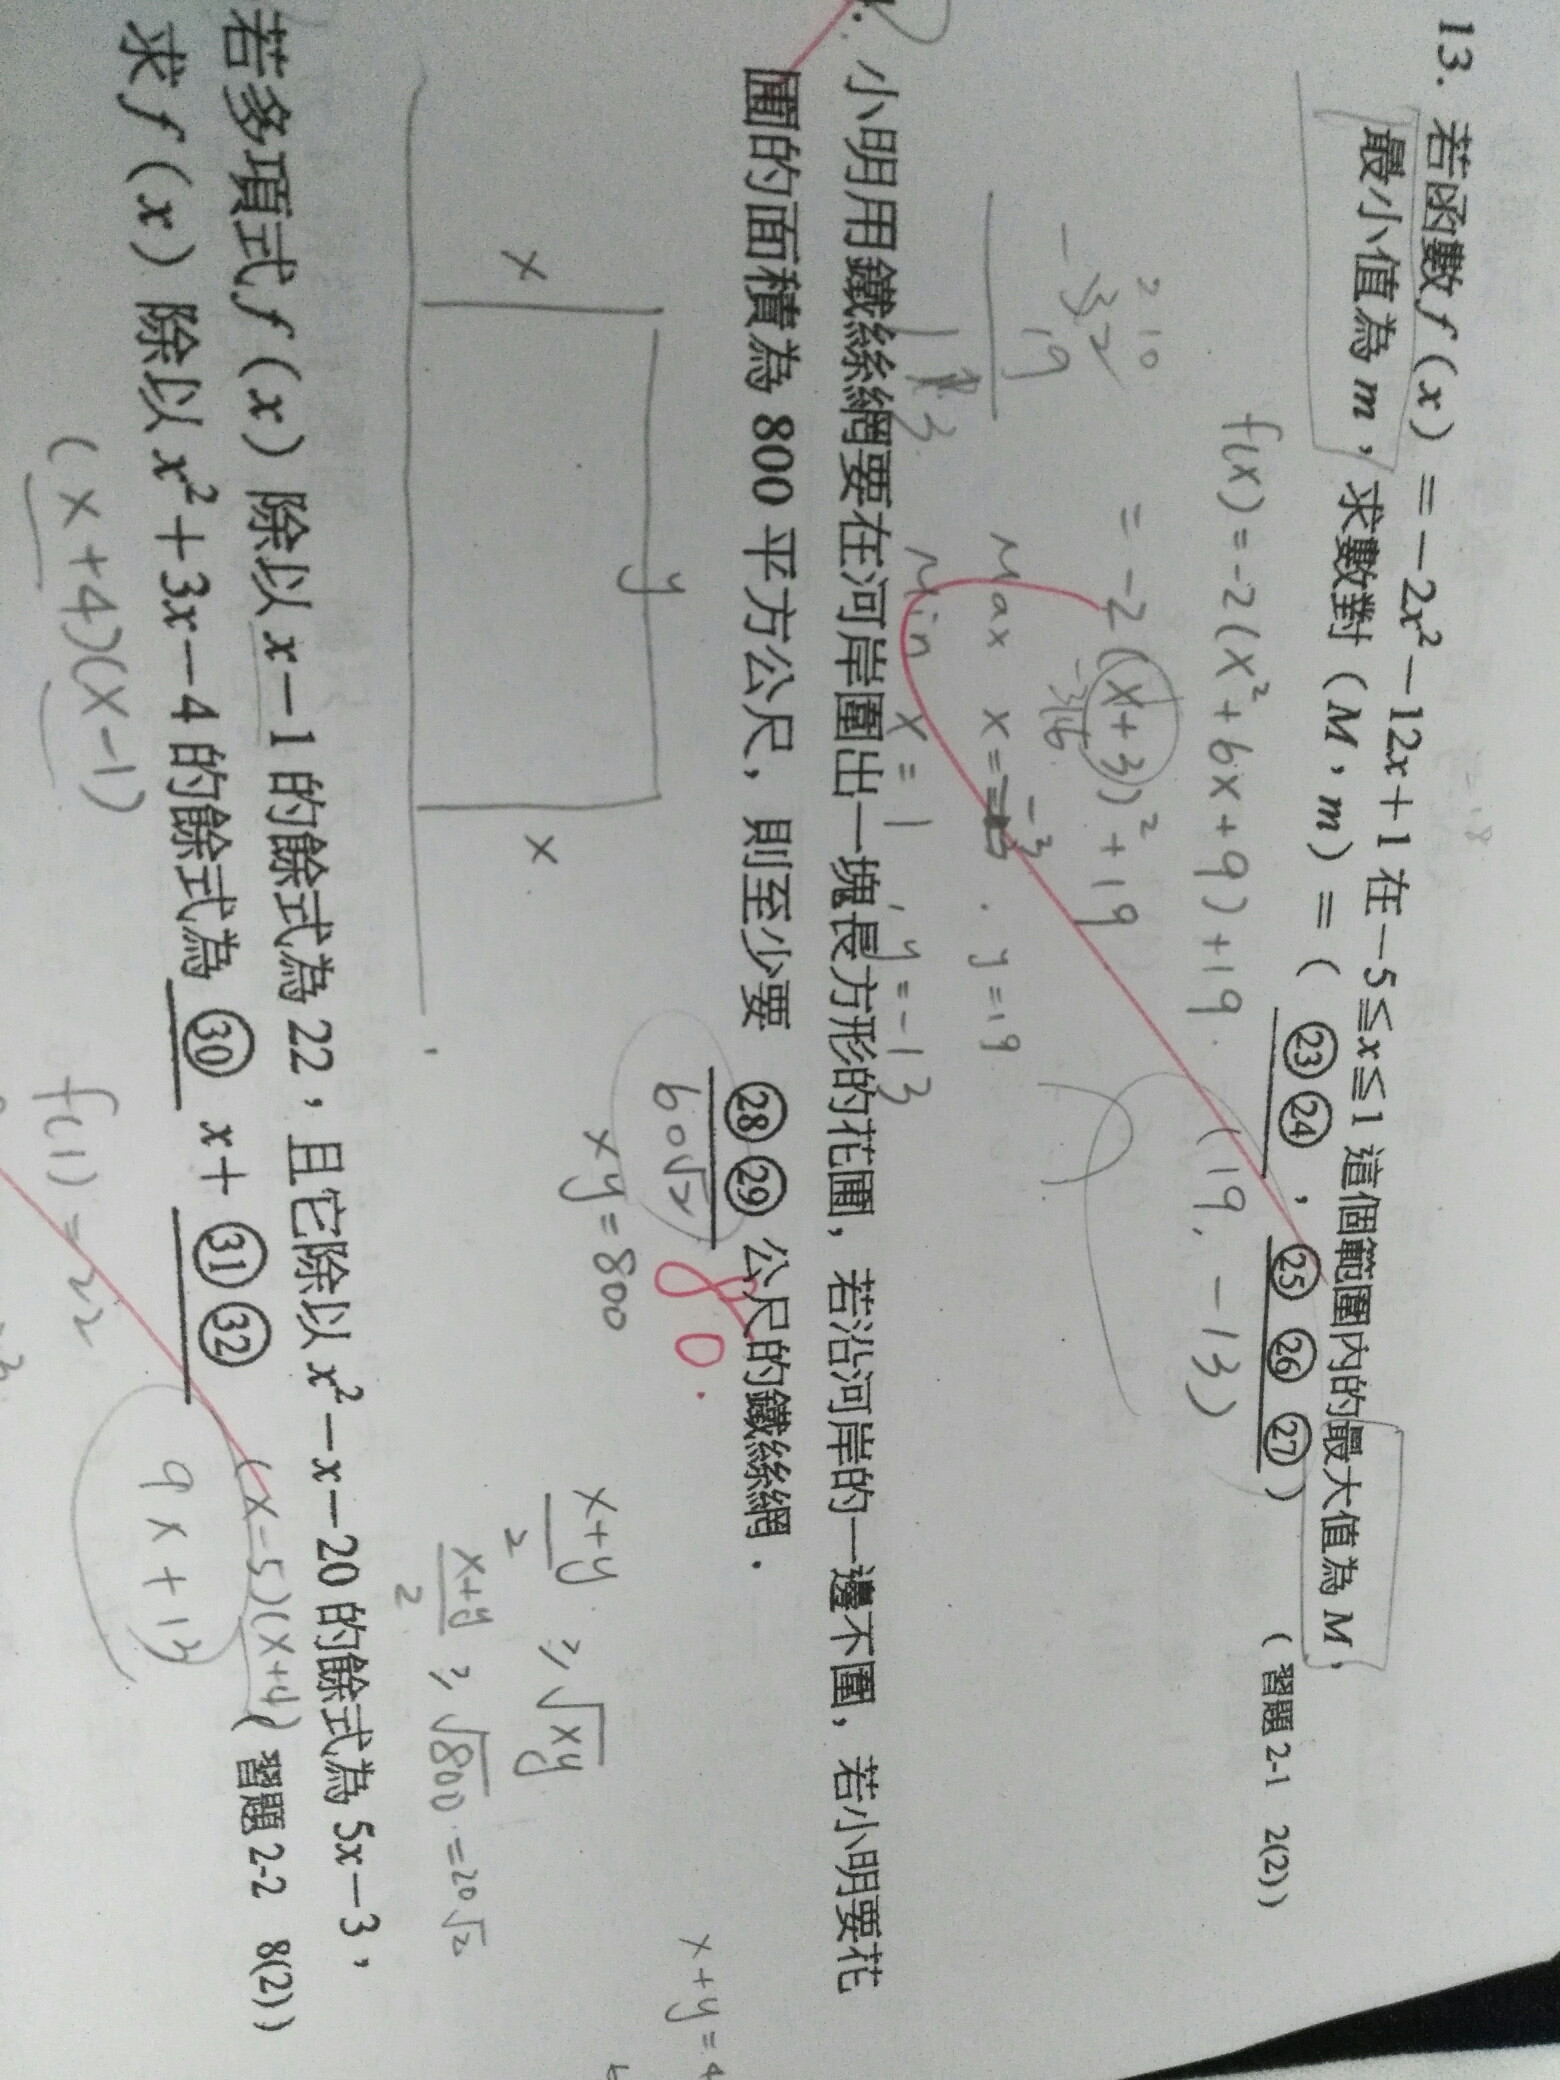 13. 若函數 f(x) = -2x² - 12x + 1 在 -5 ≦ x ≦ 1 這個範圍內的最大值為 M,
最小值為 m, 求數對 (M, m) = ( ㉓㉔ , ㉕㉖㉗ ) (習題 2-1 2(2))
f(x) = -2(x² + 6x + 9) + 19. (19, -13)
= -2(x+3)² + 19
Max x = -3 . y = 19
Min x = 1 , y = -13
-32
19
小明用鐵絲網要在河岸圍出一塊長方形的花圃, 若沿河岸的一邊不圍, 若小明要花
圃的面積為 800 平方公尺, 則至少要 ㉘㉙ 公尺的鐵絲網.
60√2
80.
xy = 800
x+y = 4
y
x
x
x+y/2 ≥ √xy
x+y/2 ≥ √800 = 20√2
若多項式 f(x) 除以 x-1 的餘式為 22, 且它除以 x² - x - 20 的餘式為 5x - 3,
求 f(x) 除以 x² + 3x - 4 的餘式為 ㉚ x + ㉛㉜ (習題 2-2 8(2))
(x-5)(x+4)
9x + 13
(x+4)(x-1)
f(1) = 22